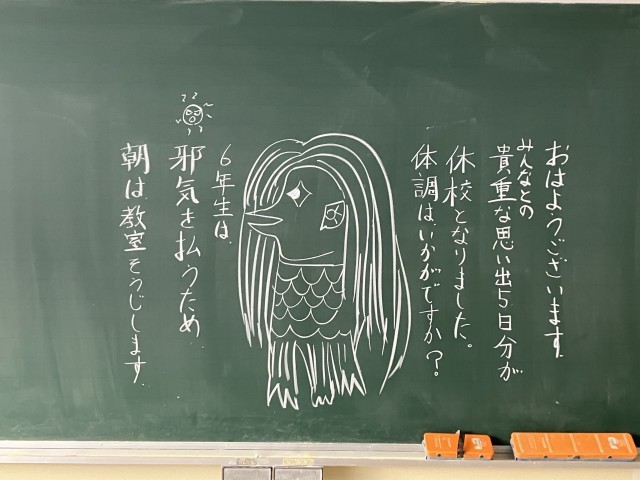 おはようございます。
みんなとの
貴重な思い出5日分が
休校となりました。
体調はいかがですか？
6年生は、
邪気を払うため、
朝は教室そうじします。